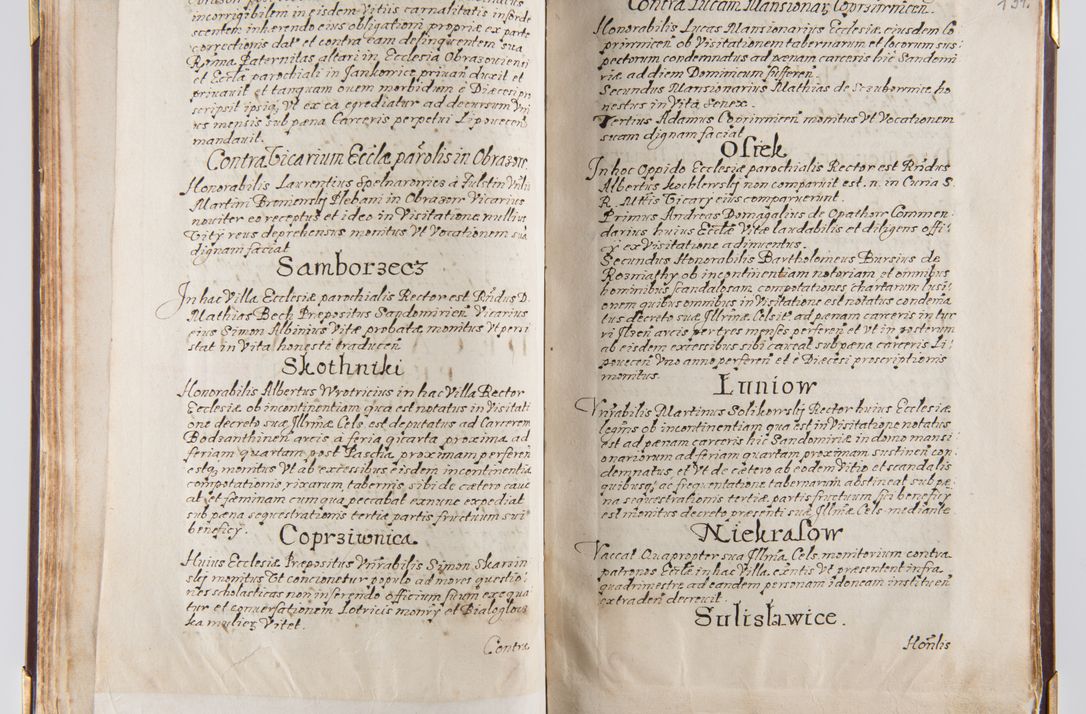 incorrigibilem in eisdem vitiis carnalitatis inforde
scentem inhærendo eius obligationi propriæ ex parte
correctionis datæ et contra eam delinquentem sua
Rmma Paternitas altari in Ecclesia Obrazoviensi
et Eccla parochiali in Jankowice privan duxit et
privavit et tanquam ovem morbidum e Diæcesi pro
scripsit ipsiq; Vt ex ea egrediatur ad decursum Vni
us mensis sub pæna Carceris perpetui Lipovecen
mandavit.
Contra Vicarium Ecclæ parolis in Obrazow
Honorabilis Laurentius Spelnarowies à Fulstin
Martini Bremenskj Plebani in Obrazow Vicarius
noviter eo receptus et ideo in Visitatione nullius
Vitÿ reus deprehensus monitus Vt Vocationem sua
dignam faciat
Samborzecz
In hac Villa Ecclesiæ parochialis Rector est Rndus D.
Mathias Bech Præpositus Sandomirien Vicarius
eius Simon Albinius Vitæ probatæ monitus Vt persi
stat in Vita honeste traducen
Skothniki
Honorabilis Albertus Wrotricius in hac Villa Rector
Ecclesiæ ob incontinentiam qua est notatus in Visitati
one decreto suæ Jllrmæ Cels. est deputatus ad Carcerem
Bodzanthinen arcis à feria quarta proxima ad
feriam quartam post Pascha proximam perferen
estq; monitus Vt ab excessibus eisdem incontinentia
compotationis, rixarum, tabernis, sibi de cætero cave
at et fæminam cum qua peccabat ex nunc expediat
sub pæna sequestrationis tertiæ partis fructuum sui
beneficy.
Coprziwnica
Huius Ecclesiæ Præpositus Vnrabilis Simon Skarzin
skj monitus Vt concionetur populo ad mores questio
nes scholasticas non inserendo officium suum exequa
tur et conversationem Lotricis monry et Bialoglows
ka mulier Vitet.
Contra
Contra Lucam Mansionar Coprziwnicen.
Honorabilis Lucas Mansionarius Ecclesiæ eiusdem Co
priwnicen ob Visitationem tabernarum et locorum sus
pectorum condemnatus ad pænam carceris hic Sandomi
riæ ad diem Dominicum sufferen
Secundus Mansionarius Mathias de Sczubormice ho
nestus in Vita Senex.
Tertius Adamus Copriwnicen monitus Vt Vocationem
suam dignam faciat
Osiek
In hoc Oppido Ecclesiæ parochialis Rector est Rndus
Albertus Kochlewskj non comparuit est. n. in Curia S.
R. Mttis Vicary eius comparuerunt.
Primus Andreas Domagalius de Opathow Commen
darius huius Ecclæ Vitæ laudabilis et diligens offi
y ex Visitatione adinventus.
Secundus Honorabilis Bartholomeus Bursius de
Rozniathy ob incontinentiam notoriam et omnibus
hominibus scandalosam, compotationes chartarum lusi
onem quibus omnibus in Visitatione est notatus condemna
tus decreto suæ Jllrmæ Cels. ad pænam carceris in tur
ri Jlzen arcis per tres menses perferen et Vt in posterum
ab eisdem excessibus sibi caveat sub pæna carceris Li
povecen Vno anno perferen et è Diæcesi proscriptionis
monitus.
Luniow
Vnrabilis Martinus Solikowskj Rector huius Ecclesiæ
legims ob incontinentiam qua est in Visitatione notatus
est ad pænam carceris hic Sandomiriæ in domo mansi
onariorum ad feriam quartam proximam sustinen con
demnatus et Vt de cætero ab eodem Vitio et scandalis
quibusq; ac frequentatione tabernarum abstineat sub pæ
na sequestrationis tertiæ partis fructuum sui beneficy
est monitus decreto præsenti suæ Jllmæ Cels. mediante
Niekrasow
Vaccat Quapropter sua Jllma Cels. monitorium contra
patronos Ecclæ in hac Villa existis Vt præsentent infra
quadrimestre ad eandem personam idoneam instituen
extraden decrevit.
Sulislawice.
Honrlis